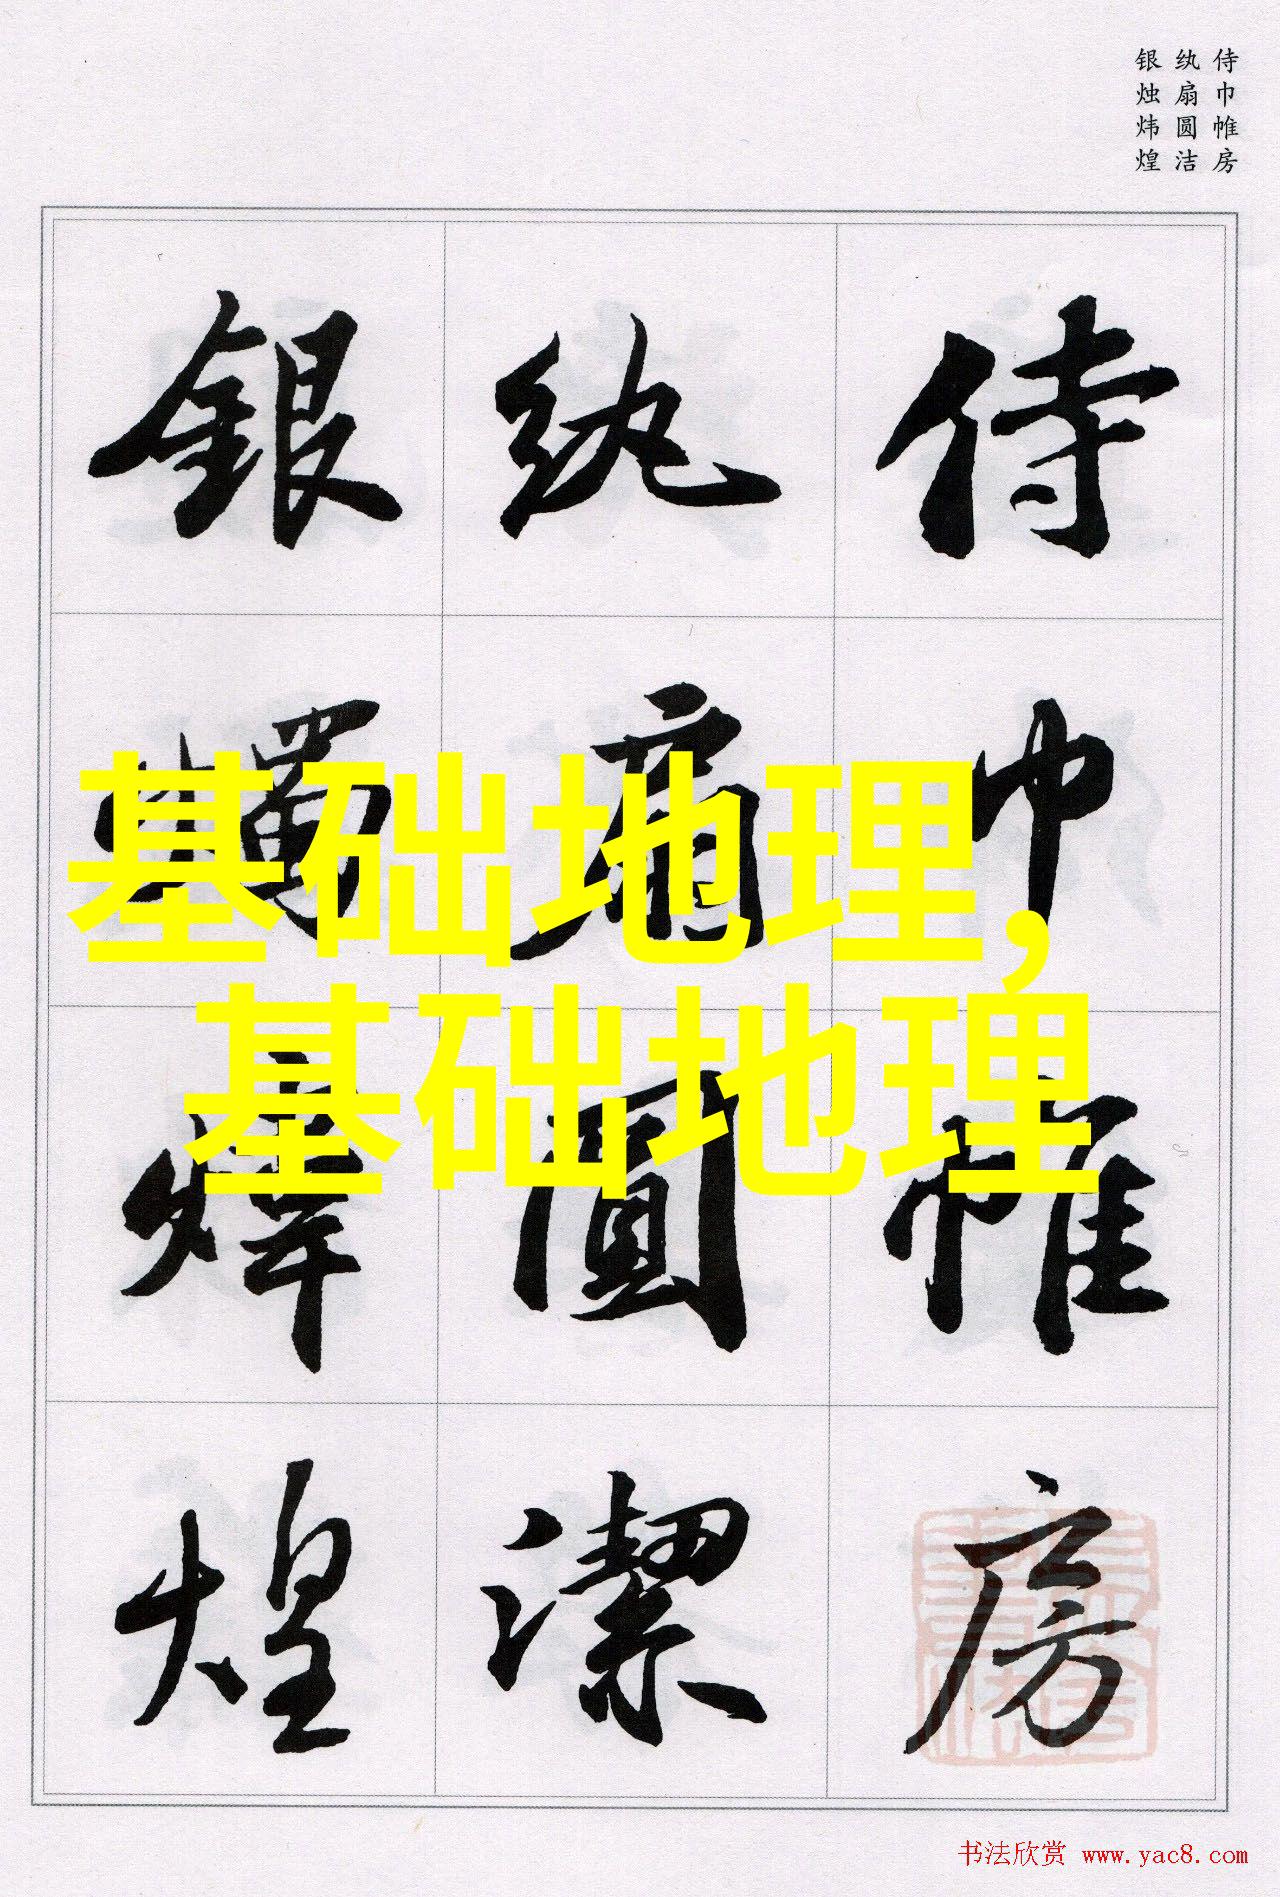 侍巾帷房
纨扇圆洁
银烛炜煌
侍巾帷房
纨扇圓潔
銀燭煒煌
基础地理,
基础地理
书法欣赏 www.yac8.com